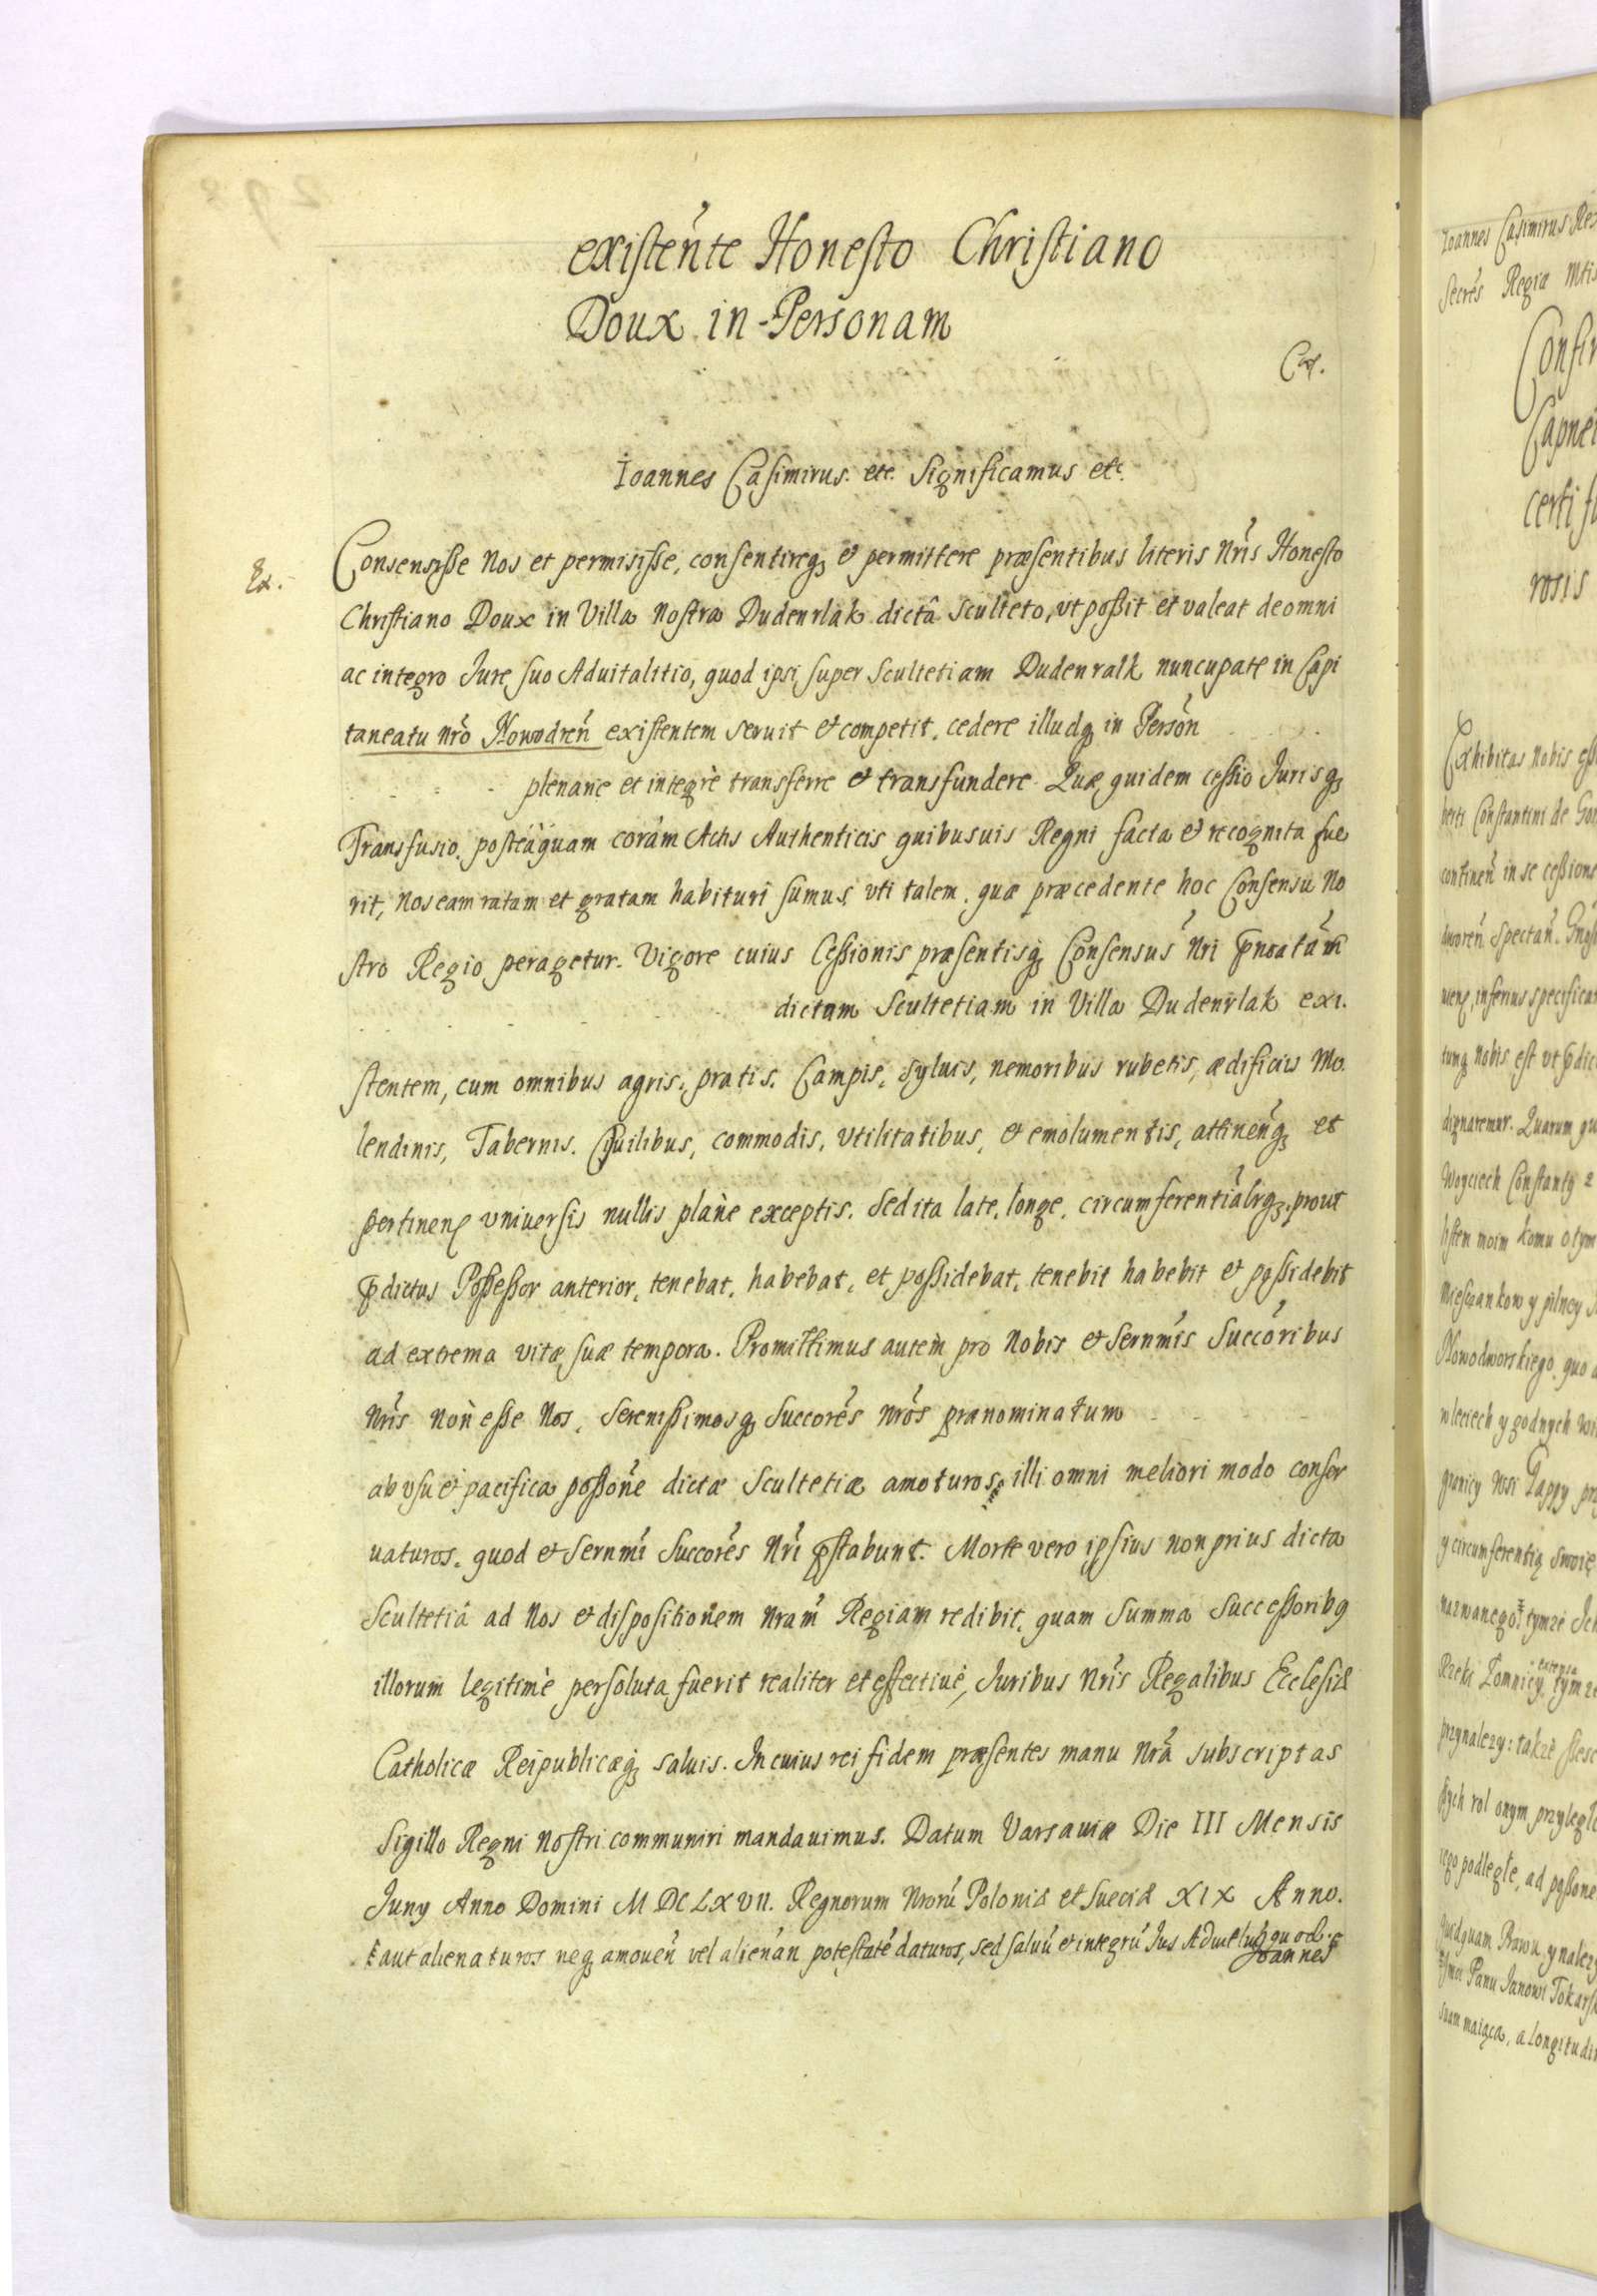 existen̄te Honesto Christiano
Doux in Personam
Ioannes Casimirus. etc. Significamus etc.
Ex. Consensisse Nos et permisisse, consentireq₃ et permittere præsentibus literis Nr̄is Honesto
Christiano Doux in Villa Nostra Dudenrlak dictâ Sculteto, vt possit et valeat de omni
ac integro Jure suo Aduitalitio, quod ipsi super Scultetiam Dudenralk nuncupate in Capi
taneatu Nr̄o Nowodren̄ existentem seruit et competit, cedere illudq₃ in Person̄
plenarie et integrè transferre et transfundere. Quæ quidem cessio Jurisq₃
Transfusio, posteàquam coràm Actis Authenticis quibusuis Regni facta et recognita fue
rit, Nos eam ratam et gratam habituri sumus, vti talem, quæ præcedente hoc Consensu No
stro Regio peragetur. Vigore cuius Cessionis præsentisq₃ Consensus Nr̄i p̄noatum̄
dictam Scultetiam in Villa Dudenrlak exi.
stentem, cum omnibus agris, pratis, Campis, syluis, nemoribus rubetis, ædificiis Mo
lendinis, Tabernis, Ciuilibus, commodis, vtilitatibus, et emolumentis, attinen̄q₃ et
pertinen̄ vniuersis nullis planè exceptis. Sed ita late, longe, circumferentialr̄q₃, prout
p̄dictus Possessor anterior, tenebat, habebat, et possidebat, tenebit habebit et possidebit
ad extrema vitæ suæ tempora. Promittimus autem pro Nobis et Sernmis̄ Succor̄ibus
Nr̄is non esse Nos, Serenissimosq₃ Succores̄ Nr̄os prænominatum
ab vsu et pacifica posson̄e dictæ Scultetiæ amoturos, illi omni meliori modo conser
uaturos, quod et Sernmi̅ Succores̄ Nr̄i p̄stabunt. Morte vero ipsius non prius dicta
Scultetiâ ad Nos et dispositionem Nram̄ Regiam redibit, quam Summa Successoribq
illorum legitimè persoluta fuerit realiter et effectiuè, Juribus Nr̄is Regalibus Ecclesiæ
Catholicæ Reipublicæq₃ saluis. In cuius rei fidem præsentes manu Nr̄a subscriptas
Sigillo Regni Nostri communiri mandauimus. Datum Varsauiæ Die III Mensis
Juny Anno Domini M DC LX VII. Regnorum Nrorū Poloniæ et Sueciæ XIX Anno.
aut alienaturos neq₃ amouen̄ vel alienan̄ potestatē daturos, sed saluū et integrū Ius
Ioannes
Ioannes Casimirus Rex
Secres̄ Regiæ Mtis
certi
rosis
Exhibitas Nobis
Constantini de
continen̄ in se cessione
dworen̄ Spectan̄.
inferius specificat
nobis est vt p̄dic
dignaremur. Quarum
Woyciech Constanty
moim komu o tym
y pilney
Nowodworskiego, quo
y godnych
y circumferentią swoię
nazwanego tymże
Rzeki Łomnicy tymże
przynalezy: takze
rol onym przyległe
podległe, ad possone
Prawu
Panu Janowi
suam maiąca, a longitudi